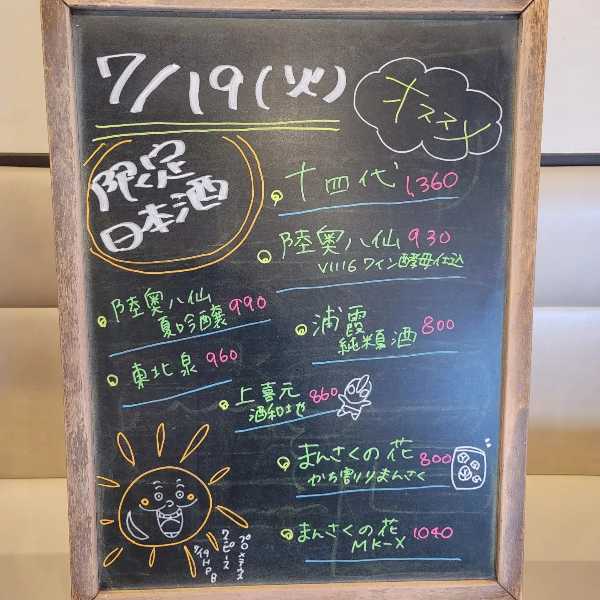 7/19(火)
オススメ
限定
日本酒
十四代 1,360
陸奥八仙 930
V1116 ワイン酵母仕込
陸奥八仙 990
夏吟醸
浦霞 800
純米夏酒
東北泉 960
上喜元 860
酒和地や
まんさくの花 800
かち割りまんさく
まんさくの花 1040
MK-X
プロメテウス
ワンピース
7/19 HPB